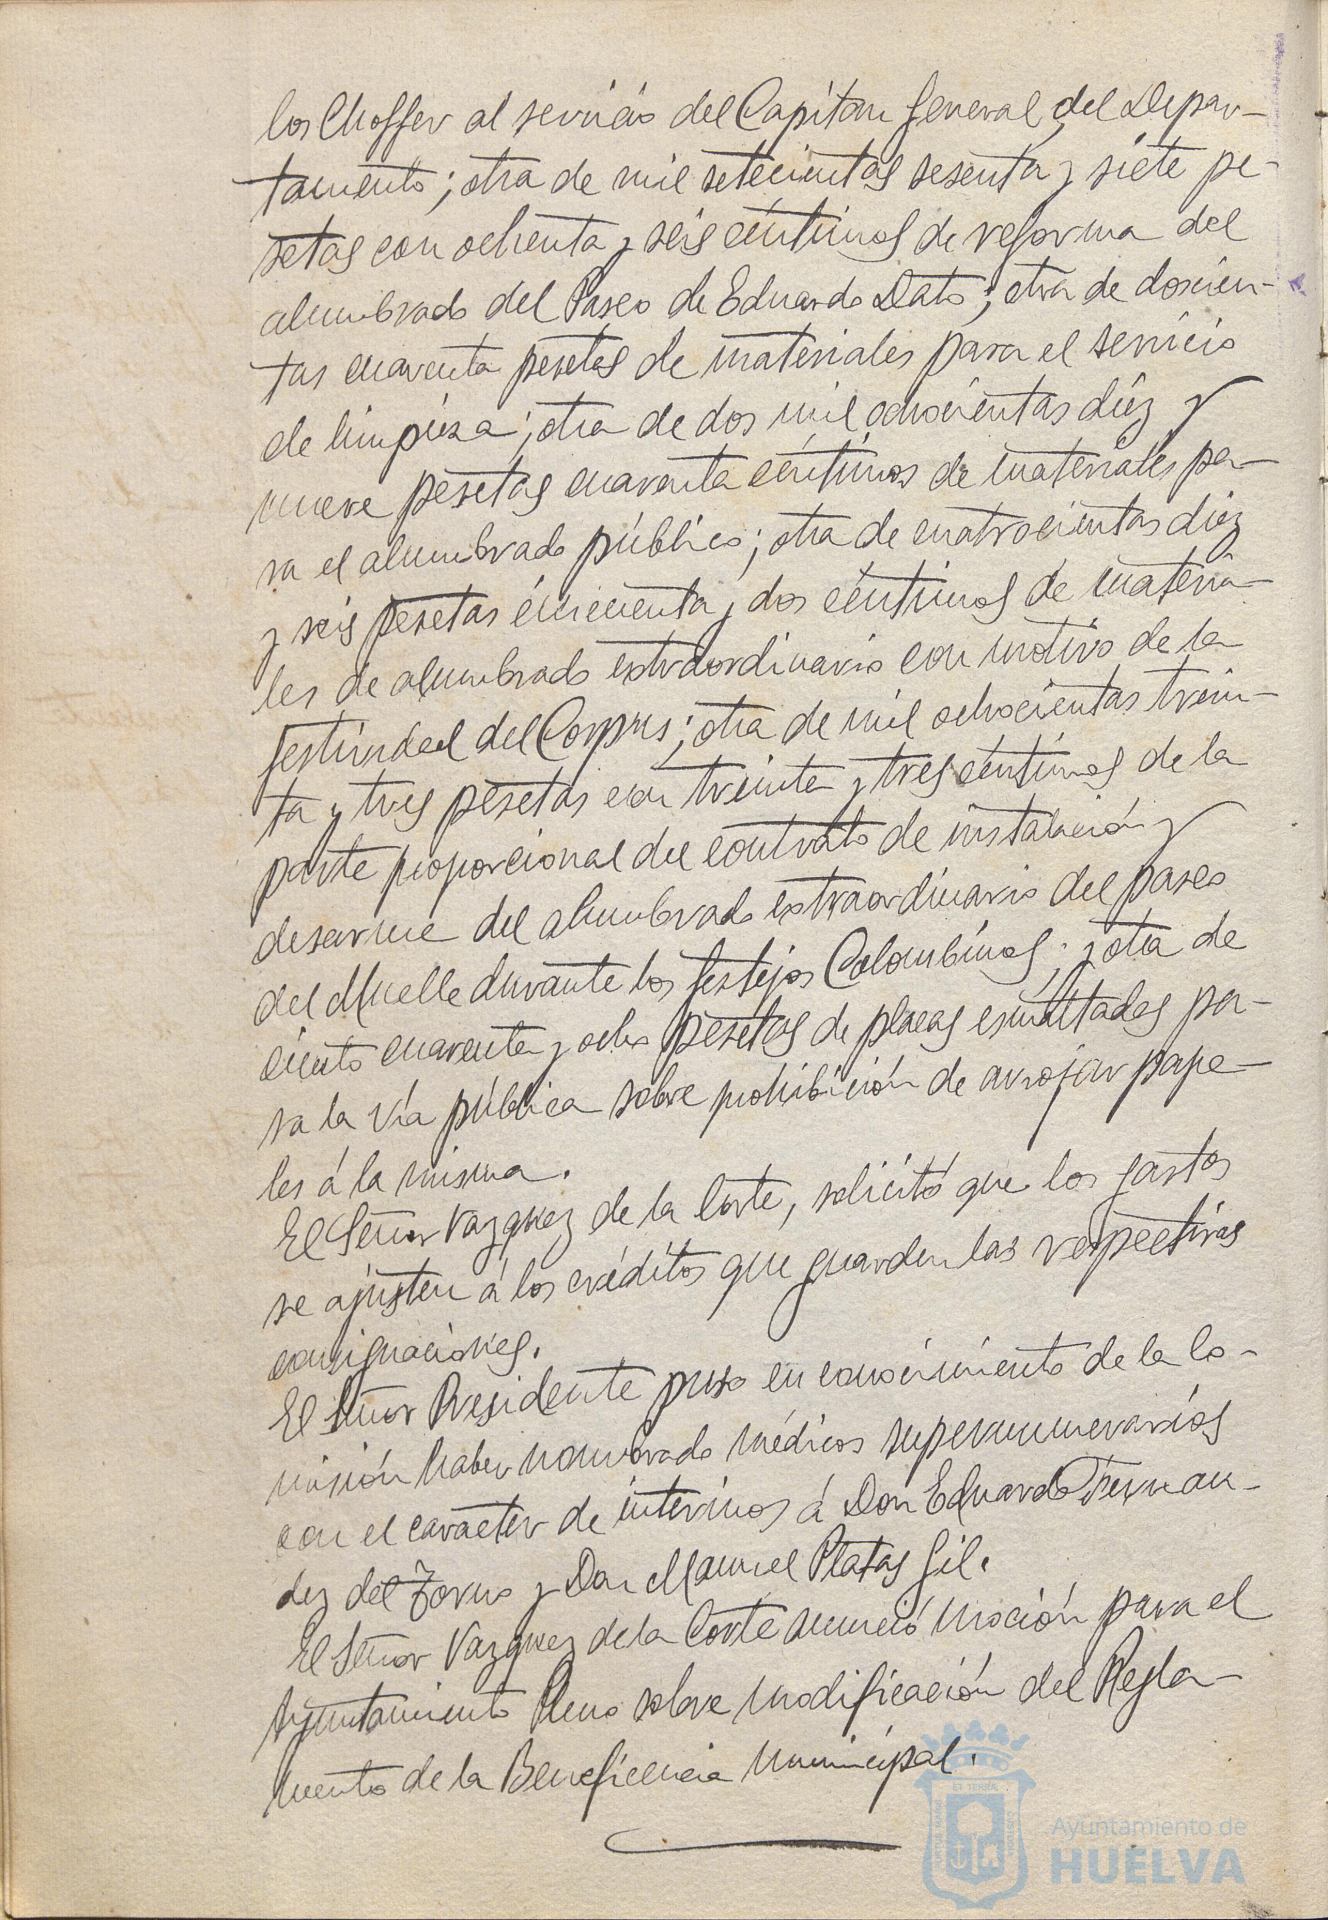 los Choffer al servicio del Capitan General del Depar-
tamento; otra de mil setecientas sesenta y siete pe-
setas con ochenta y seis céntimos de reforma del
alumbrado del Paseo de Eduardo Dato; otra de doscien-
tas cuarenta pesetas de materiales para el servicio
de limpieza; otra de dos mil ochocientas diez y
nueve pesetas cuarenta céntimos de materiales pa-
ra el alumbrado público; otra de cuatrocientas diez
y seis pesetas cincuenta y dos céntimos de materia-
les de alumbrado extraordinario con motivo de la
festividad del Corpus; otra de mil ochocientas trein-
ta y tres pesetas con treinta y tres céntimos de la
parte proporcional del contrato de instalación y
desarme del alumbrado extraordinario del paseo
del Muelle durante los festejos Colombinos; y otra de
ciento cuarenta y ocho pesetas de placas esmaltadas pa-
ra la vía pública sobre prohibición de arrojar pape-
les á la misma.
El Señor Vazquez de la Corte, solicitó que los gastos
se ajusten á los créditos que guarden las respectivas
consignaciones.
El Señor Presidente puso en conocimiento de la Co-
misión haber nombrado médicos supernumerarios
con el caracter de interinos á Don Eduardo Fernan-
dez del Torno y Don Manuel Platas Gil.
El Señor Vazquez de la Corte anunció moción para el
Ayuntamiento Pleno sobre modificación del Regla-
mento de la Beneficencia Municipal.
Ayuntamiento de
HUELVA